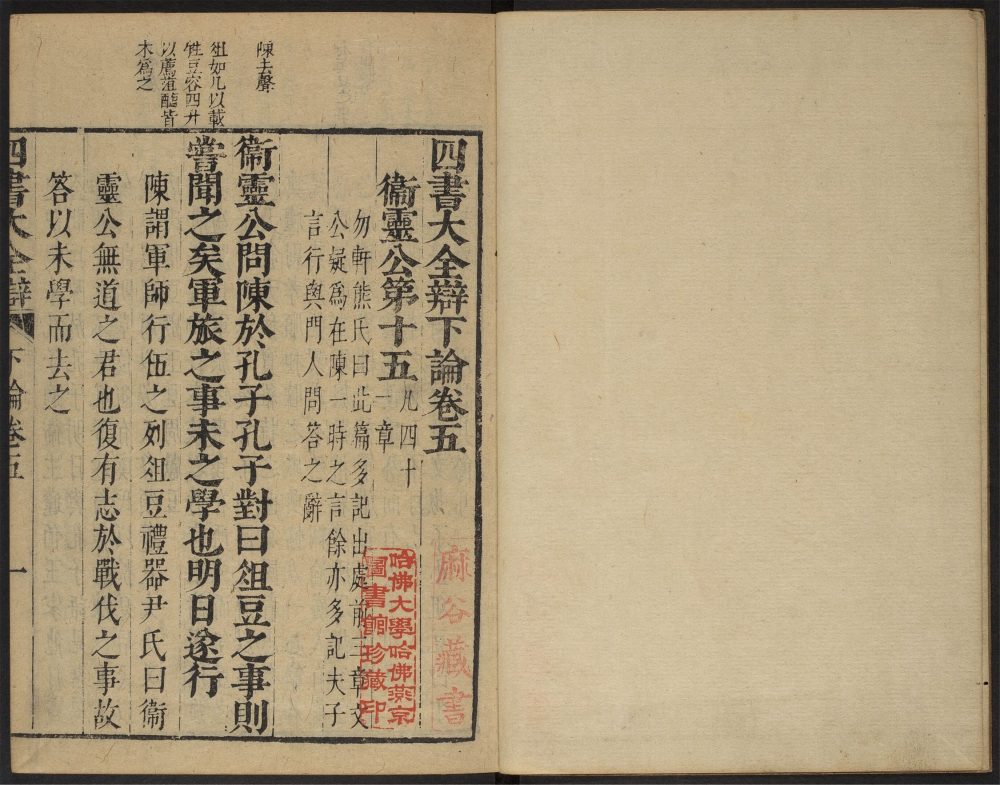 陳去聲
俎如几以載
牲豆容四升
以薦菹醢皆
木為之
四書大全辯下論卷五
衞靈公第十五
凡四十
一章
勿軒熊氏曰此篇多記出處前三章文
公疑為在陳一時之言餘亦多記夫子
言行與門人問答之辭
衞靈公問陳於孔子孔子對曰俎豆之事則
嘗聞之矣軍旅之事未之學也明日遂行
陳謂軍師行伍之列俎豆禮器尹氏曰衞
靈公無道之君也復有志於戰伐之事故
答以未學而去之
四書大全辯
下論卷五
一
麻谷藏書
哈佛大學哈佛燕京
圖書館珍藏印